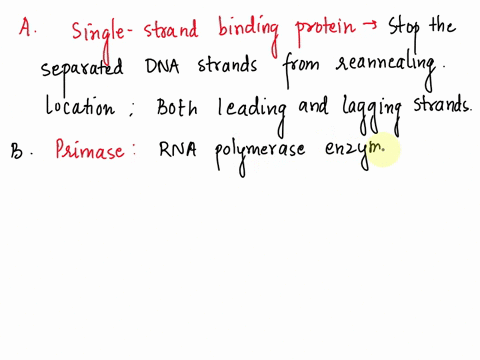 A. Single-strand binding protein → Stop the
separated DNA strands from reannealing.
Location: Both leading and lagging strands.
B. Primase: RNA polymerase enzym